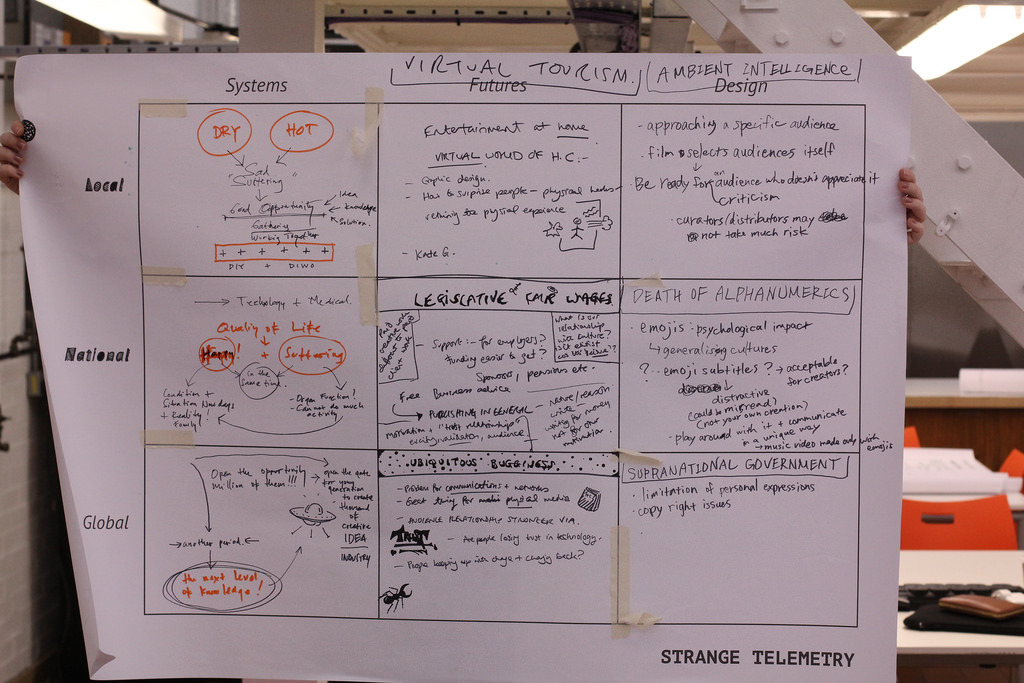 VIRTUAL TOURISM.
AMBIENT INTELLIGENCE
Systems
Futures
Design
Local
DRY
HOT
Sad
Suffering
Opportunity
Idea
Knowledge
Solution.
Gathering
Working Together
+ + + + + +
DIY + DIWO
Entertainment at home
VIRTUAL WORLD OF H.C:-
- Graphic design.
- How to surprise people - physical
physical experience
- Kate G.
- approaching a specific audience
- film selects audiences itself
Be ready for an audience who doesn't appreciate it
criticism
· curators/distributors may
not take much risk
National
Technology + Medical.
Quality of Life
+ Suffering
in the
same time.
Condition +
Situation Nowdays
+ Reality!
Family!
- Organ Function!
- Cannot do much
activity
LEGISLATIVE FAIR WAGES
what is our
relationship
with culture?
- Support :- for employers?
funding easier to get?
Sponsors, pensions etc.
Free Business advice
PUBLISHING IN GENERAL
motivation + "trust relationship"
audience
writing for money
not for
motivation
DEATH OF ALPHANUMERICS
· emojis : psychological impact
generalising cultures
? · emoji subtitles ? → acceptable
for creators?
distractive
(could be misread)
(not your own creation)
· play around with it + communicate
in a unique way
→ music video made only with
emojis
Global
Open the opportunity
Million of them!!!
open the gate
for young
generation
to create
thousand
of
creative
IDEA
INDUSTRY
→ another period. ←
the next level
of knowledge!
UBIQUITOUS BUGGINESS
- Problem for communications + networks
- Great thing for physical media
- AUDIENCE RELATIONSHIP STRONGER VIA.
TRUST
- Are people losing trust in technology.
- People keeping up with change + changing back?
SUPRANATIONAL GOVERNMENT
· limitation of personal expressions
· copy right issues
STRANGE TELEMETRY